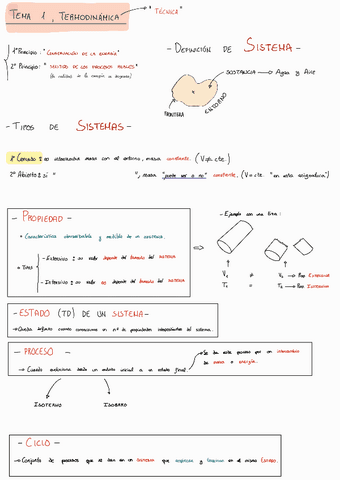 TEMA 1, TERMODINÁMICA
"TÉCNICA"
1º Principio: "CONSERVACIÓN DE LA ENERGÍA"
2º Principio: "SENTIDO DE LOS PROCESOS REALES"
(la calidad de la energía se degrada)
- DEFINICIÓN DE SISTEMA -
SUSTANCIA → Agua y Aire
FRONTERA
ENTORNO
- TIPOS DE SISTEMAS -
1º Cerrado: no intercambia masa con el entorno, masa constante. (V≠cte.)
2º Abierto: si " ", masa "puede ser o no" constante. (V=cte. "en esta asignatura")
- PROPIEDAD -
* Característica observable y medible de un sistema.
* Tipos
- Extensiva: su valor depende del tamaño del SISTEMA
- Intensiva: su valor no depende del tamaño del SISTEMA
- Ejemplo con una tiza:
V₁ ≠ V₂ → Prop. EXTENSIVA
T₁ = T₂ → Prop. INTENSIVA
- ESTADO (TD) DE UN SISTEMA -
→ Queda definido cuando conocemos un nº de propiedades independientes del sistema.
- PROCESO -
→ Cuando evoluciona desde un estado inicial a un estado final
→ Se da este proceso por un intercambio de masa o energía.
ISOTERMO
ISOBARO
- CICLO -
→ Conjunto de procesos que se dan en un SISTEMA que empiezan y terminan en el mismo ESTADO.